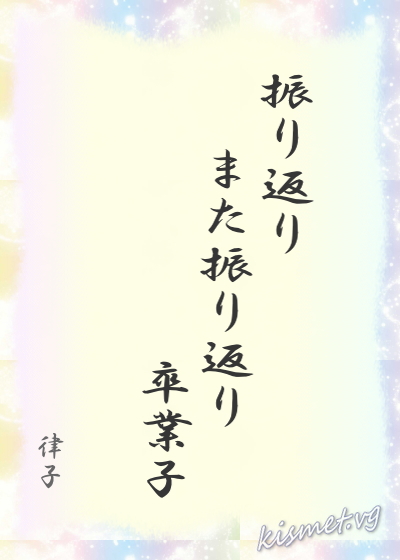 振り返り
また振り返り
卒業子
律子
kismet.vg